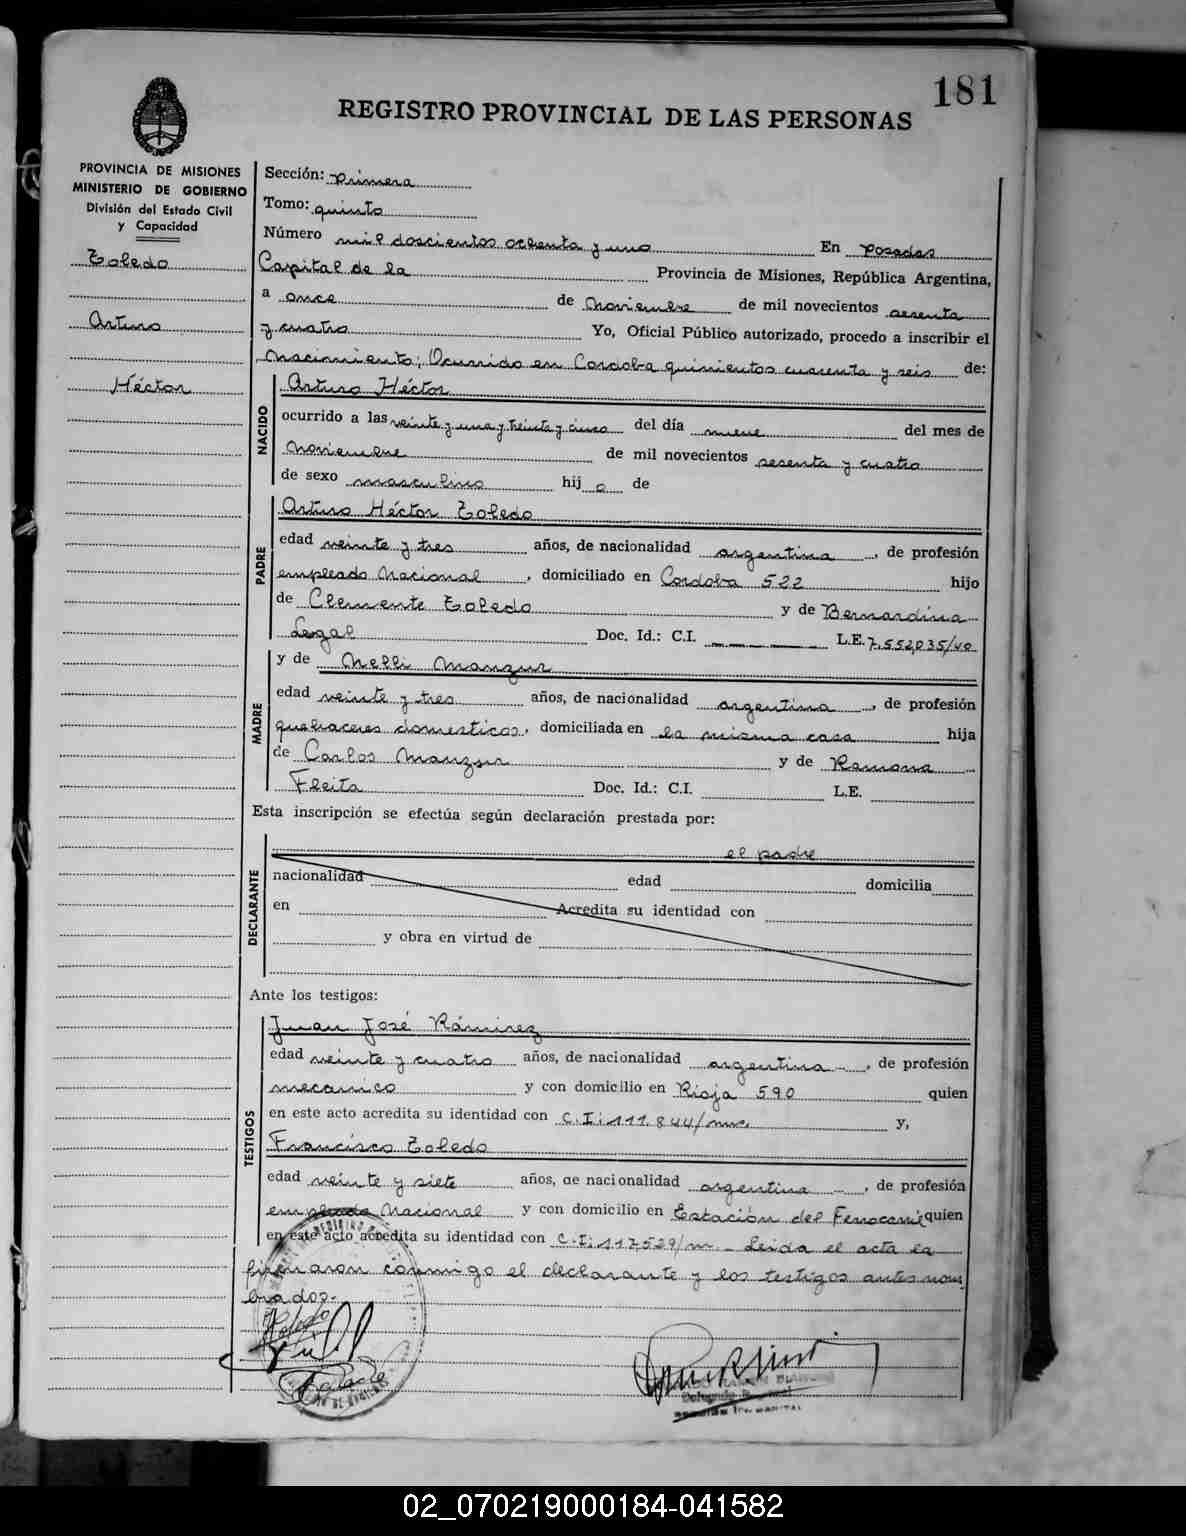 181
REGISTRO PROVINCIAL DE LAS PERSONAS
PROVINCIA DE MISIONES
MINISTERIO DE GOBIERNO
División del Estado Civil
y Capacidad
Toledo
Arturo
Héctor
Sección: primera
Tomo: quinto
Número mil doscientos ochenta y uno En Posadas
Capital de la Provincia de Misiones, República Argentina,
a once de Noviembre de mil novecientos sesenta
y cuatro Yo, Oficial Público autorizado, procedo a inscribir el
Nacimiento; Ocurrido en Cordoba quinientos cuarenta y seis de:
NACIDO
Arturo Héctor
ocurrido a las veinte y una y treinta y cinco del día nueve del mes de
Noviembre de mil novecientos sesenta y cuatro
de sexo masculino hij o de
PADRE
Arturo Héctor Toledo
edad veinte y tres años, de nacionalidad argentina, de profesión
empleado Nacional, domiciliado en Cordoba 522 hijo
de Clemente Toledo y de Bernardina
Legal Doc. Id.: C.I. L.E. 7.552,035/40
MADRE
y de Nelli Manzur
edad veinte y tres años, de nacionalidad argentina, de profesión
quehaceres domesticos, domiciliada en la misma casa hija
de Carlos Manzur y de Ramona
Fleita Doc. Id.: C.I. L.E.
Esta inscripción se efectúa según declaración prestada por:
DECLARANTE
el padre
nacionalidad edad domicilia
en Acredita su identidad con
y obra en virtud de
Ante los testigos:
TESTIGOS
Juan José Rámirez
edad veinte y cuatro años, de nacionalidad argentina, de profesión
mecanico y con domicilio en Rioja 590 quien
en este acto acredita su identidad con C.I: 111.844/mnes. y,
Francisco Toledo
edad veinte y siete años, de nacionalidad argentina, de profesión
empleado Nacional y con domicilio en Estación del Ferrocarril quien
en este acto acredita su identidad con C.I: 117529/m. - Leida el acta la
firmaron conmigo el declarante y los testigos antes nom
brados.-
Toledo
02_070219000184-041582